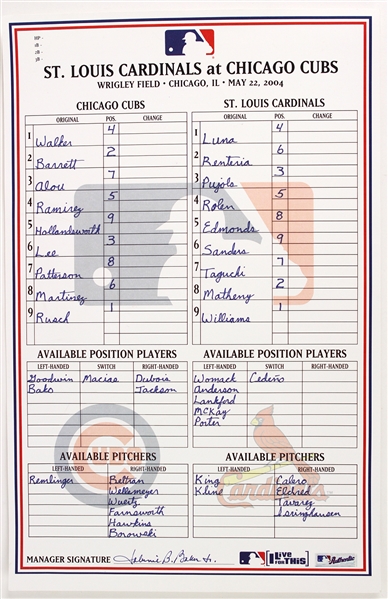 HP -
1B -
2B -
3B -
ST. LOUIS CARDINALS at CHICAGO CUBS
WRIGLEY FIELD • CHICAGO, IL • MAY 22, 2004
CHICAGO CUBS
ORIGINAL POS. CHANGE
1 Walker 4
2 Barrett 2
3 Alou 7
4 Ramirez 5
5 Hollandsworth 9
6 Lee 3
7 Patterson 8
8 Martinez 6
9 Rusch 1
ST. LOUIS CARDINALS
ORIGINAL POS. CHANGE
1 Luna 4
2 Renteria 6
3 Pujols 3
4 Rolen 5
5 Edmonds 8
6 Sanders 9
7 Taguchi 7
8 Matheny 2
9 Williams 1
AVAILABLE POSITION PLAYERS
LEFT-HANDED SWITCH RIGHT-HANDED
Goodwin Macias Dubois
Bako Jackson
AVAILABLE POSITION PLAYERS
LEFT-HANDED SWITCH RIGHT-HANDED
Womack Cedeño
Anderson
Lankford
McKay
Porter
AVAILABLE PITCHERS
LEFT-HANDED RIGHT-HANDED
Remlinger Beltran
Wellemeyer
Wuertz
Farnsworth
Hawkins
Borowski
AVAILABLE PITCHERS
LEFT-HANDED RIGHT-HANDED
King Calero
Kline Eldred
Tavarez
Isringhausen
Cardinals
MANAGER SIGNATURE Johnnie B. Baker Jr.
I Live For This!
Authentic